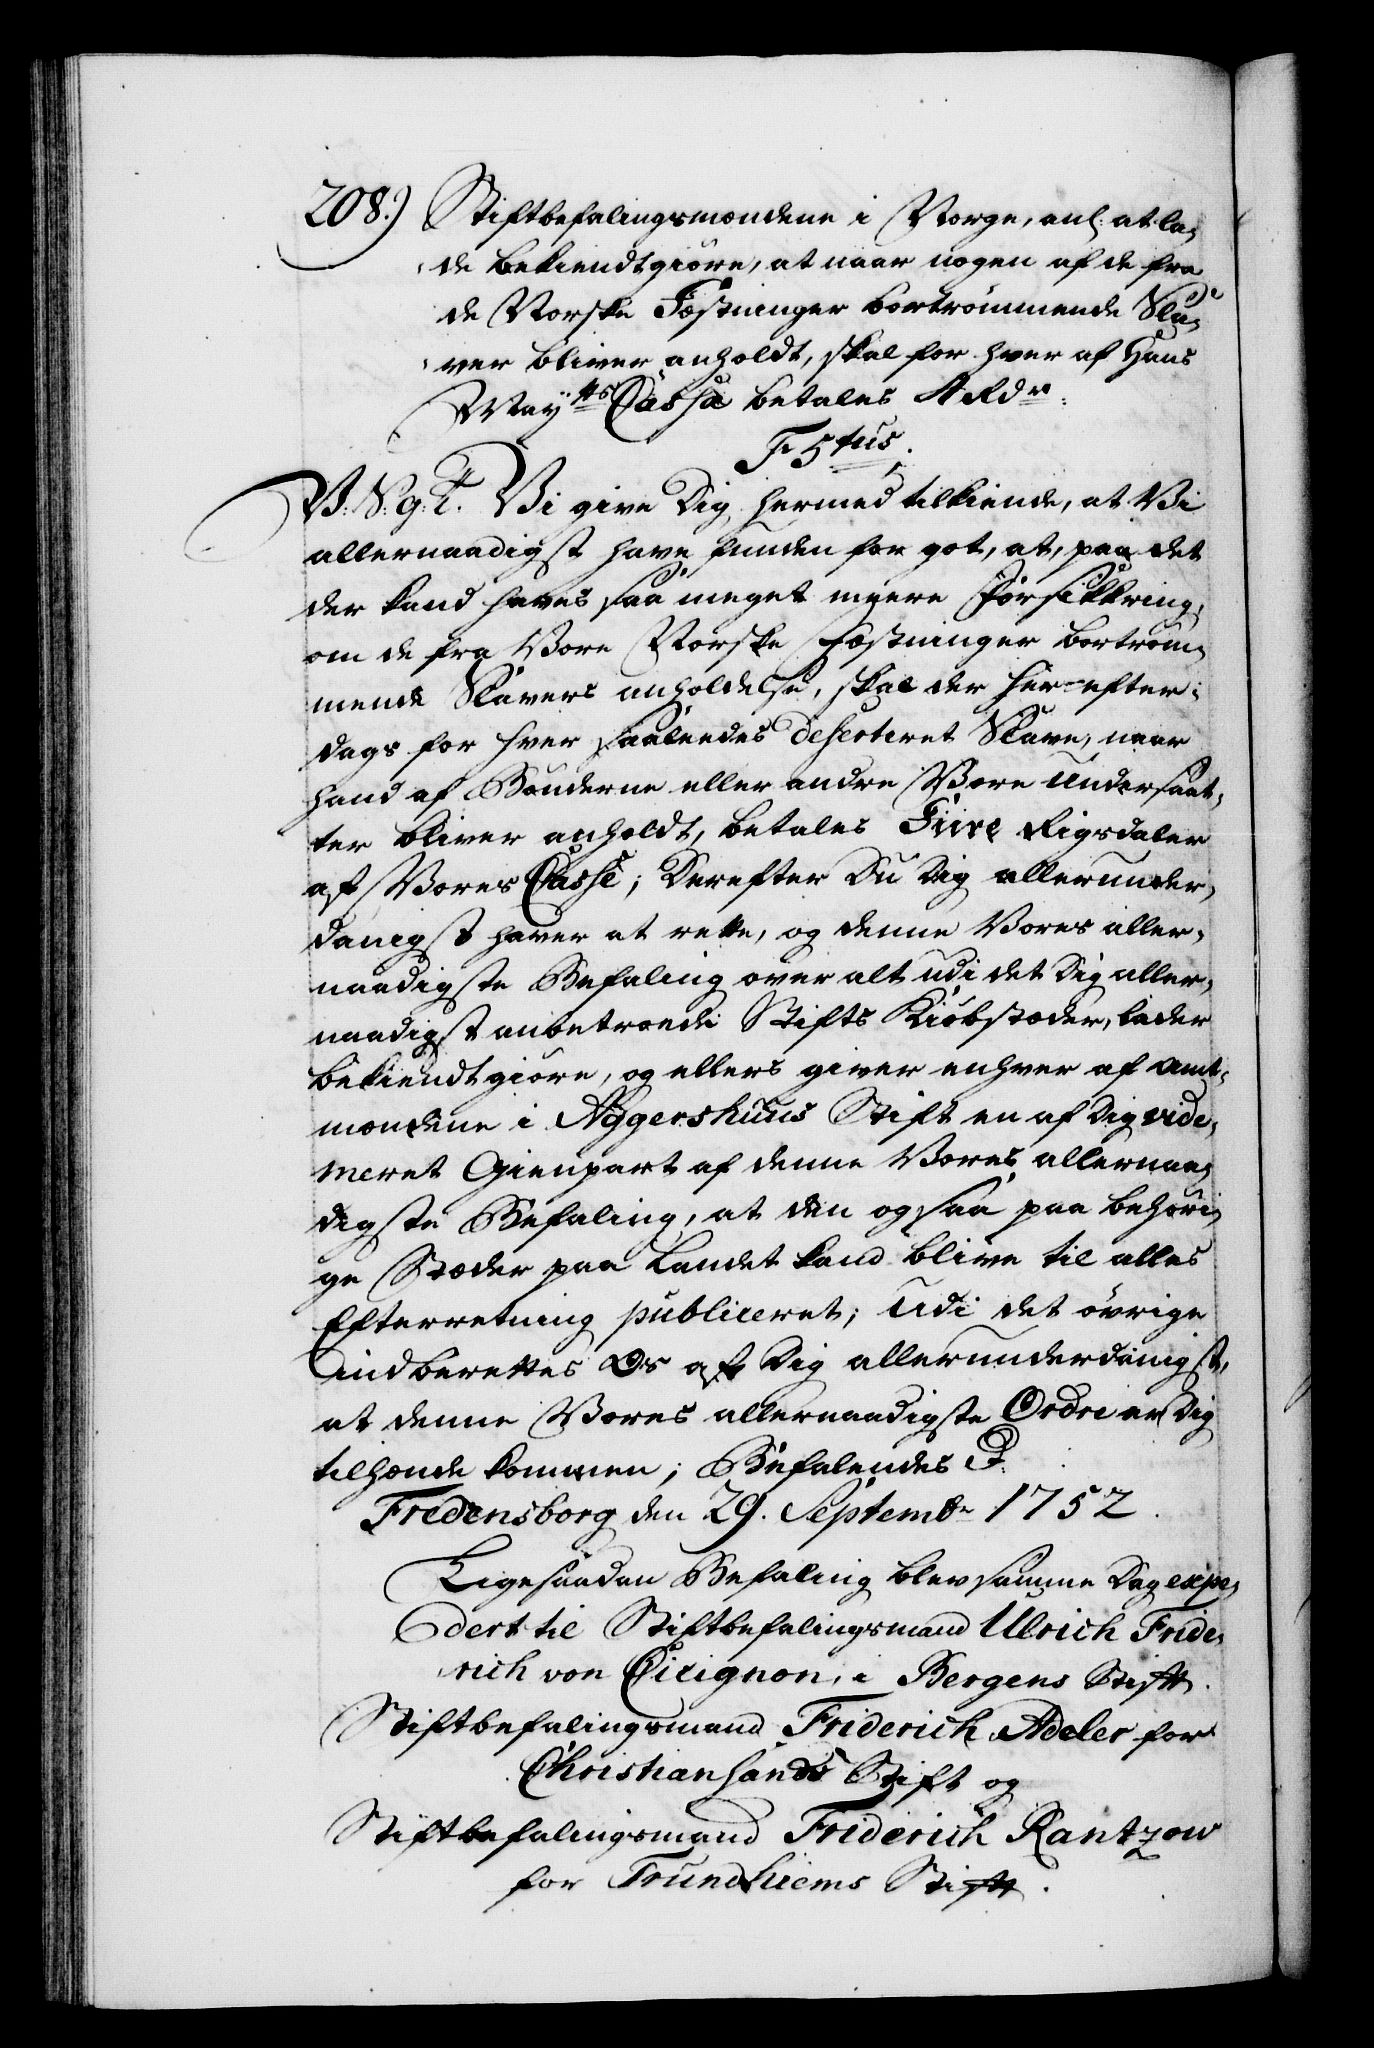 208.) Stiftbefalingsmændene i Norge, anl. at la,
de bekiendtgiöre, at naar nogen af de fra
de Norske Fæstninger bortrömmende Sla,
ver bliver anholdt, skal for hver af Hans
May.tts Cassa betales 4 Rdr.
F 5tus.
V. S. G. T. Vi give Dig hermed tilkiende, at Vi
allernaadigst have funden for got, at, paa det
der kand haves saa meget meere Forsikkring,
om de fra Vore Norske Fæstninger bortröm,
mende Slavers anholdelse, skal der her efter,
dags for hver saaledes deserteret Slave, naar
hand af Bönderne eller andre Vore Undersaat,
ter bliver anholdt, betales Fiire Rigsdaler
af Vores Casse; Derefter Du Dig allerunder,
danigst haver at rette, og denne Vores aller,
naadigste Befaling over alt udi det Dig aller,
naadigst anbetroede Stifts Kiöbstæder, lader
bekiendtgiöre, og ellers giver enhver af Amt,
mændene i Aggershuus Stift en af Dig vidi,
meret Gienpart af denne Vores allernaa,
digste Befaling, at den ogsaa paa behöri,
ge Stæder paa Landet kand blive til alles
Efterretning publiceret; Udi det övrige
indberettes Os af Dig allerunderdanigst,
at denne Vores allernaadigste Ordre er Dig
tilhænde kommen; Befalendes D.
Fredensborg den 29. Septembr 1752.
Ligesaadan Befaling blev samme Dag expe,
dert til Stiftbefalingsmand Ulrich Fride,
rich von Cicignon, i Bergens Stift.
Stiftbefalingsmand Friderich Adeler for
Christiansands Stift og
Stiftbefalingsmand Friderich Rantzow
for Trundhiems Stift.